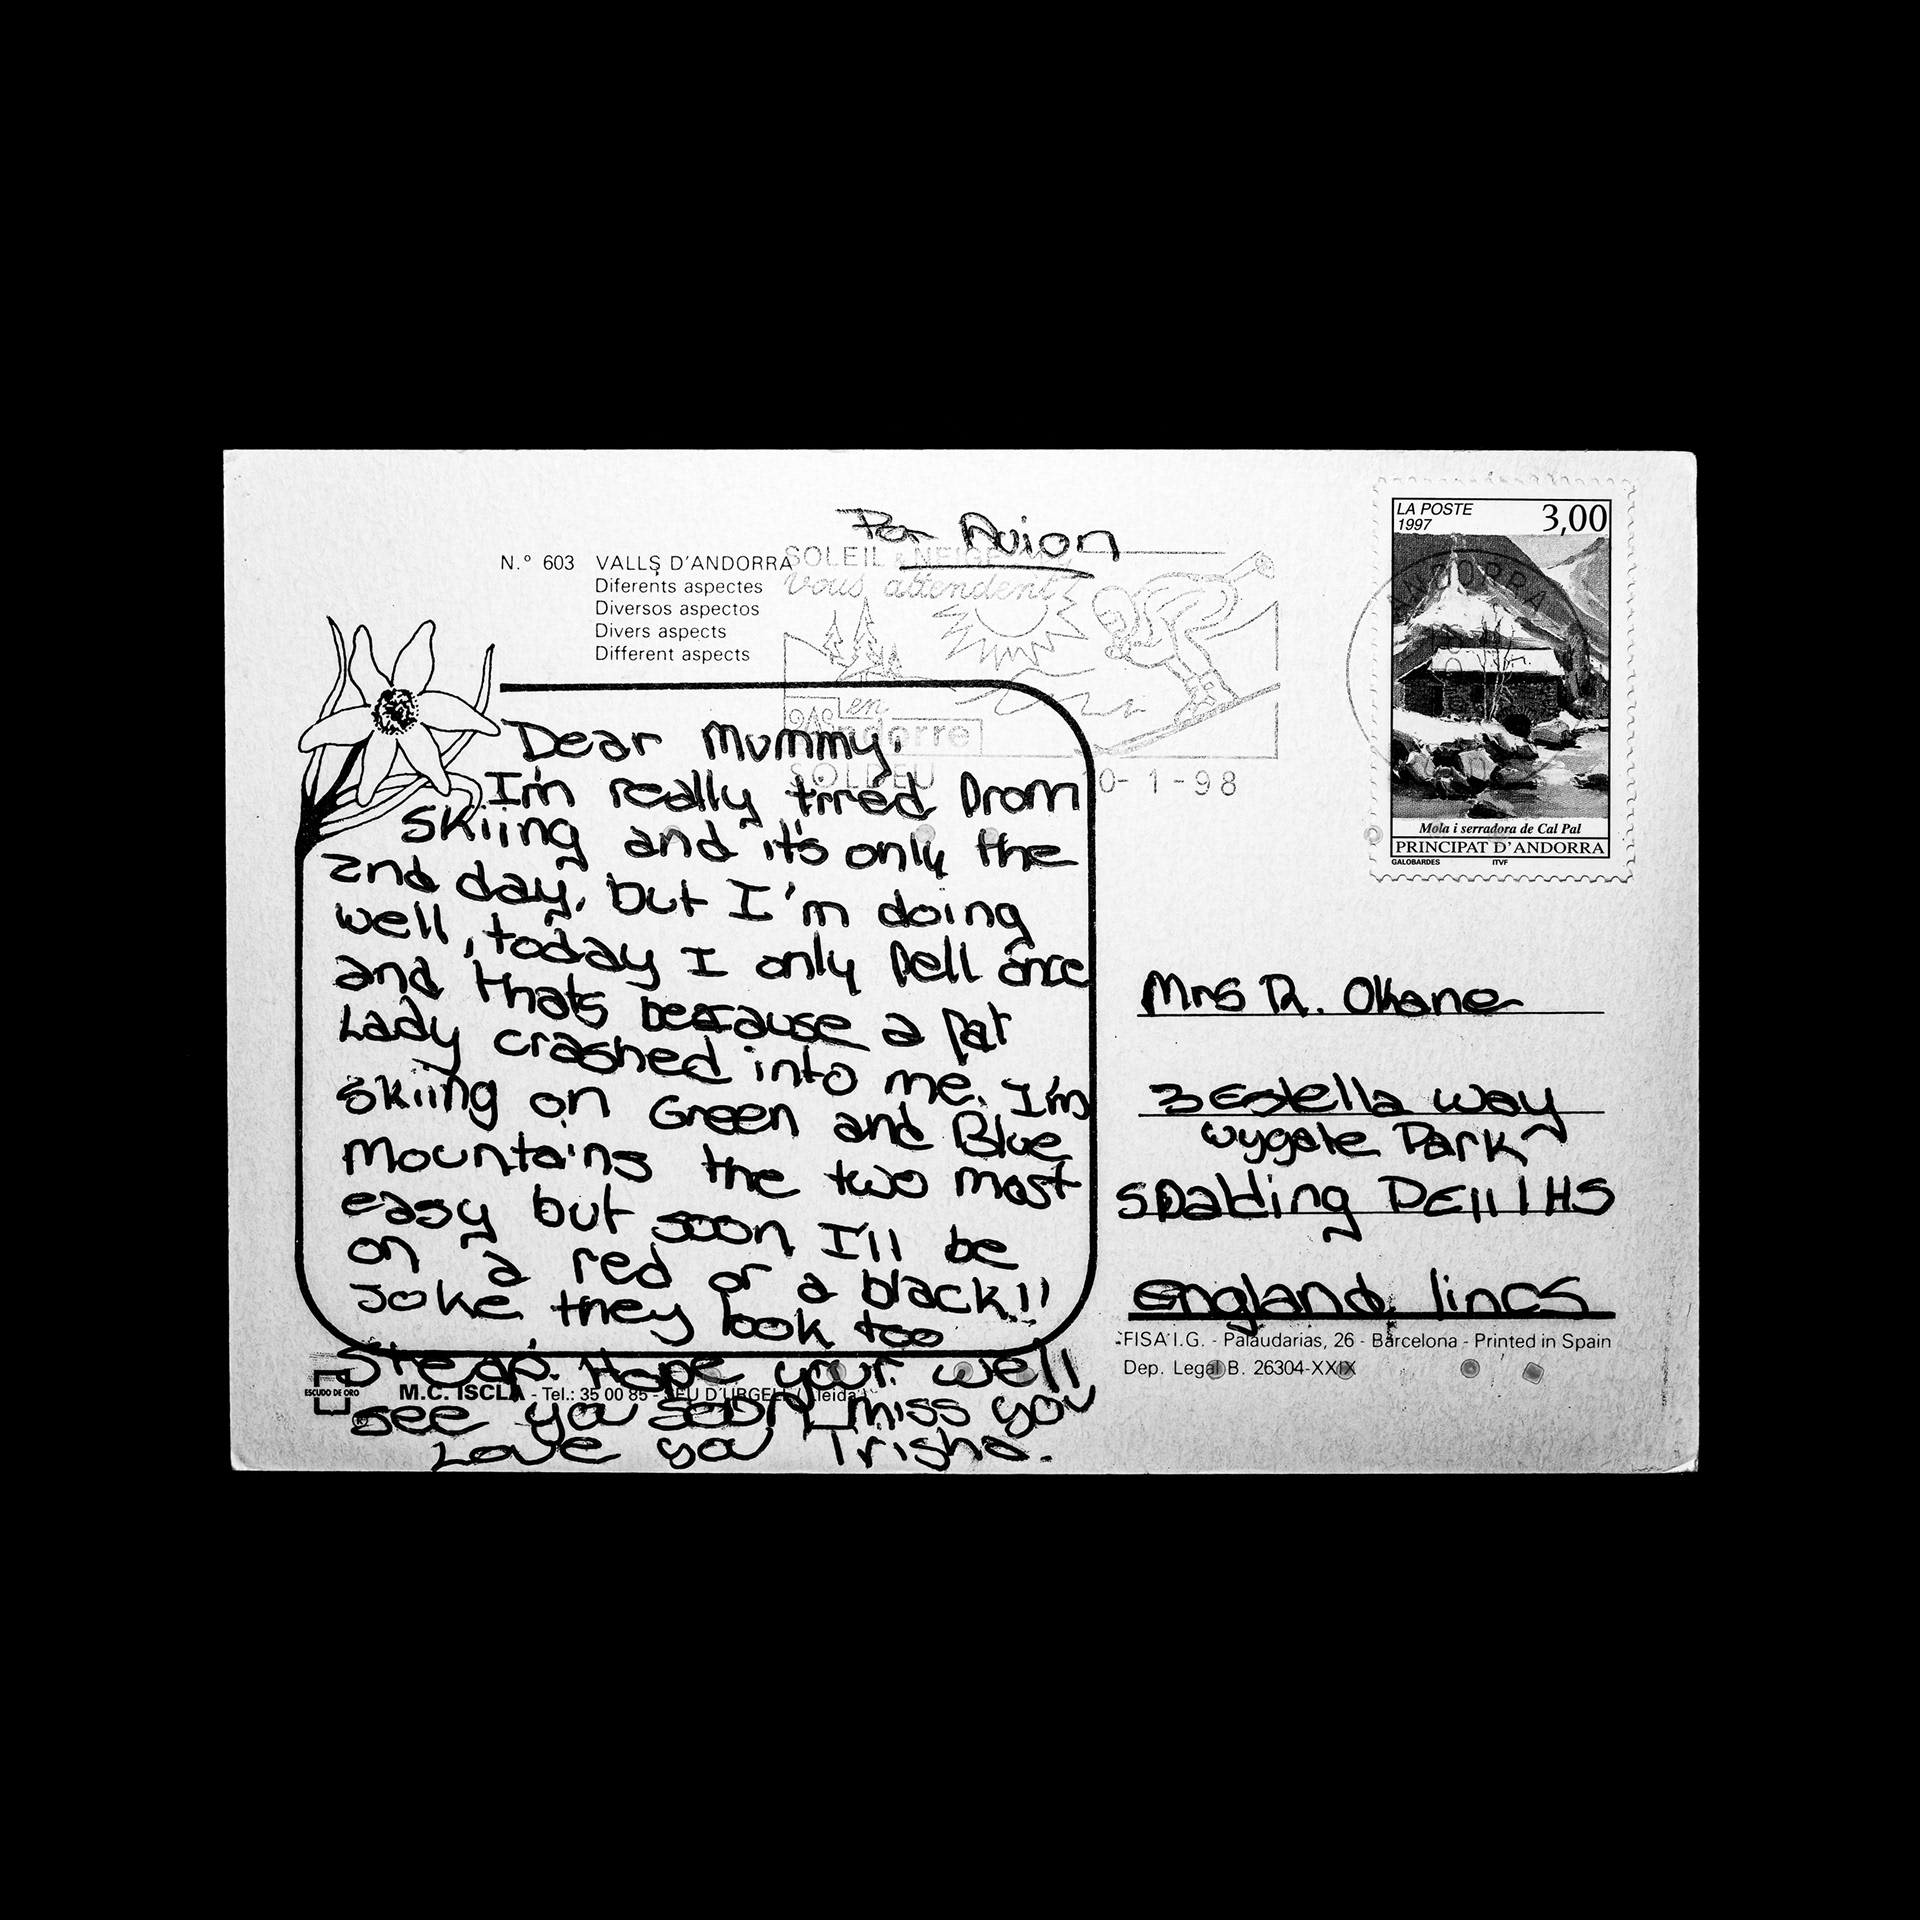 Par Avion
N.º 603 VALLS D'ANDORRA
Diferents aspectes
Diversos aspectos
Divers aspects
Different aspects
SOLEIL & NEIGE
vous attendent
en
andorre
SOLDEU
0-1-98
LA POSTE
1997
3,00
ANDORRA
Mola i serradora de Cal Pal
PRINCIPAT D'ANDORRA
GALOBARDES ITVF
Dear Mummy,
I'm really tired from
skiing and it's only the
2nd day, but I'm doing
well, today I only fell once
and thats because a fat
Lady crashed into me. I'm
skiing on Green and Blue
Mountains the two most
easy but soon I'll be
on a red or a black!!
Joke they look too
steap. Hope your well
see ya soon I miss you
Love ya Trisha.
Mrs R. Okane
3 Estella way
wygate Park
Spalding PE11 1HS
England, lincs
FISA I.G. - Palaudarias, 26 - Barcelona - Printed in Spain
Dep. Legal B. 26304-XXIX
ESCUDO DE ORO
M.C. ISCLA - Tel.: 35 00 85 - SEU D'URGELL (Lleida)